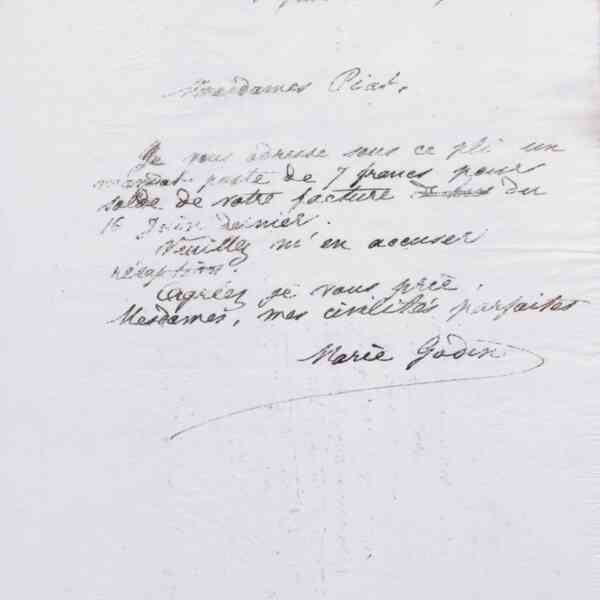 Mesdames Piat,
Je vous adresse sous ce pli un
mandat-poste de 7 francs pour
solde de votre facture du
16 Juin dernier.
Veuillez m'en accuser
réception.
Agréez je vous prie,
Mesdames, mes civilités parfaites
Marie Godin